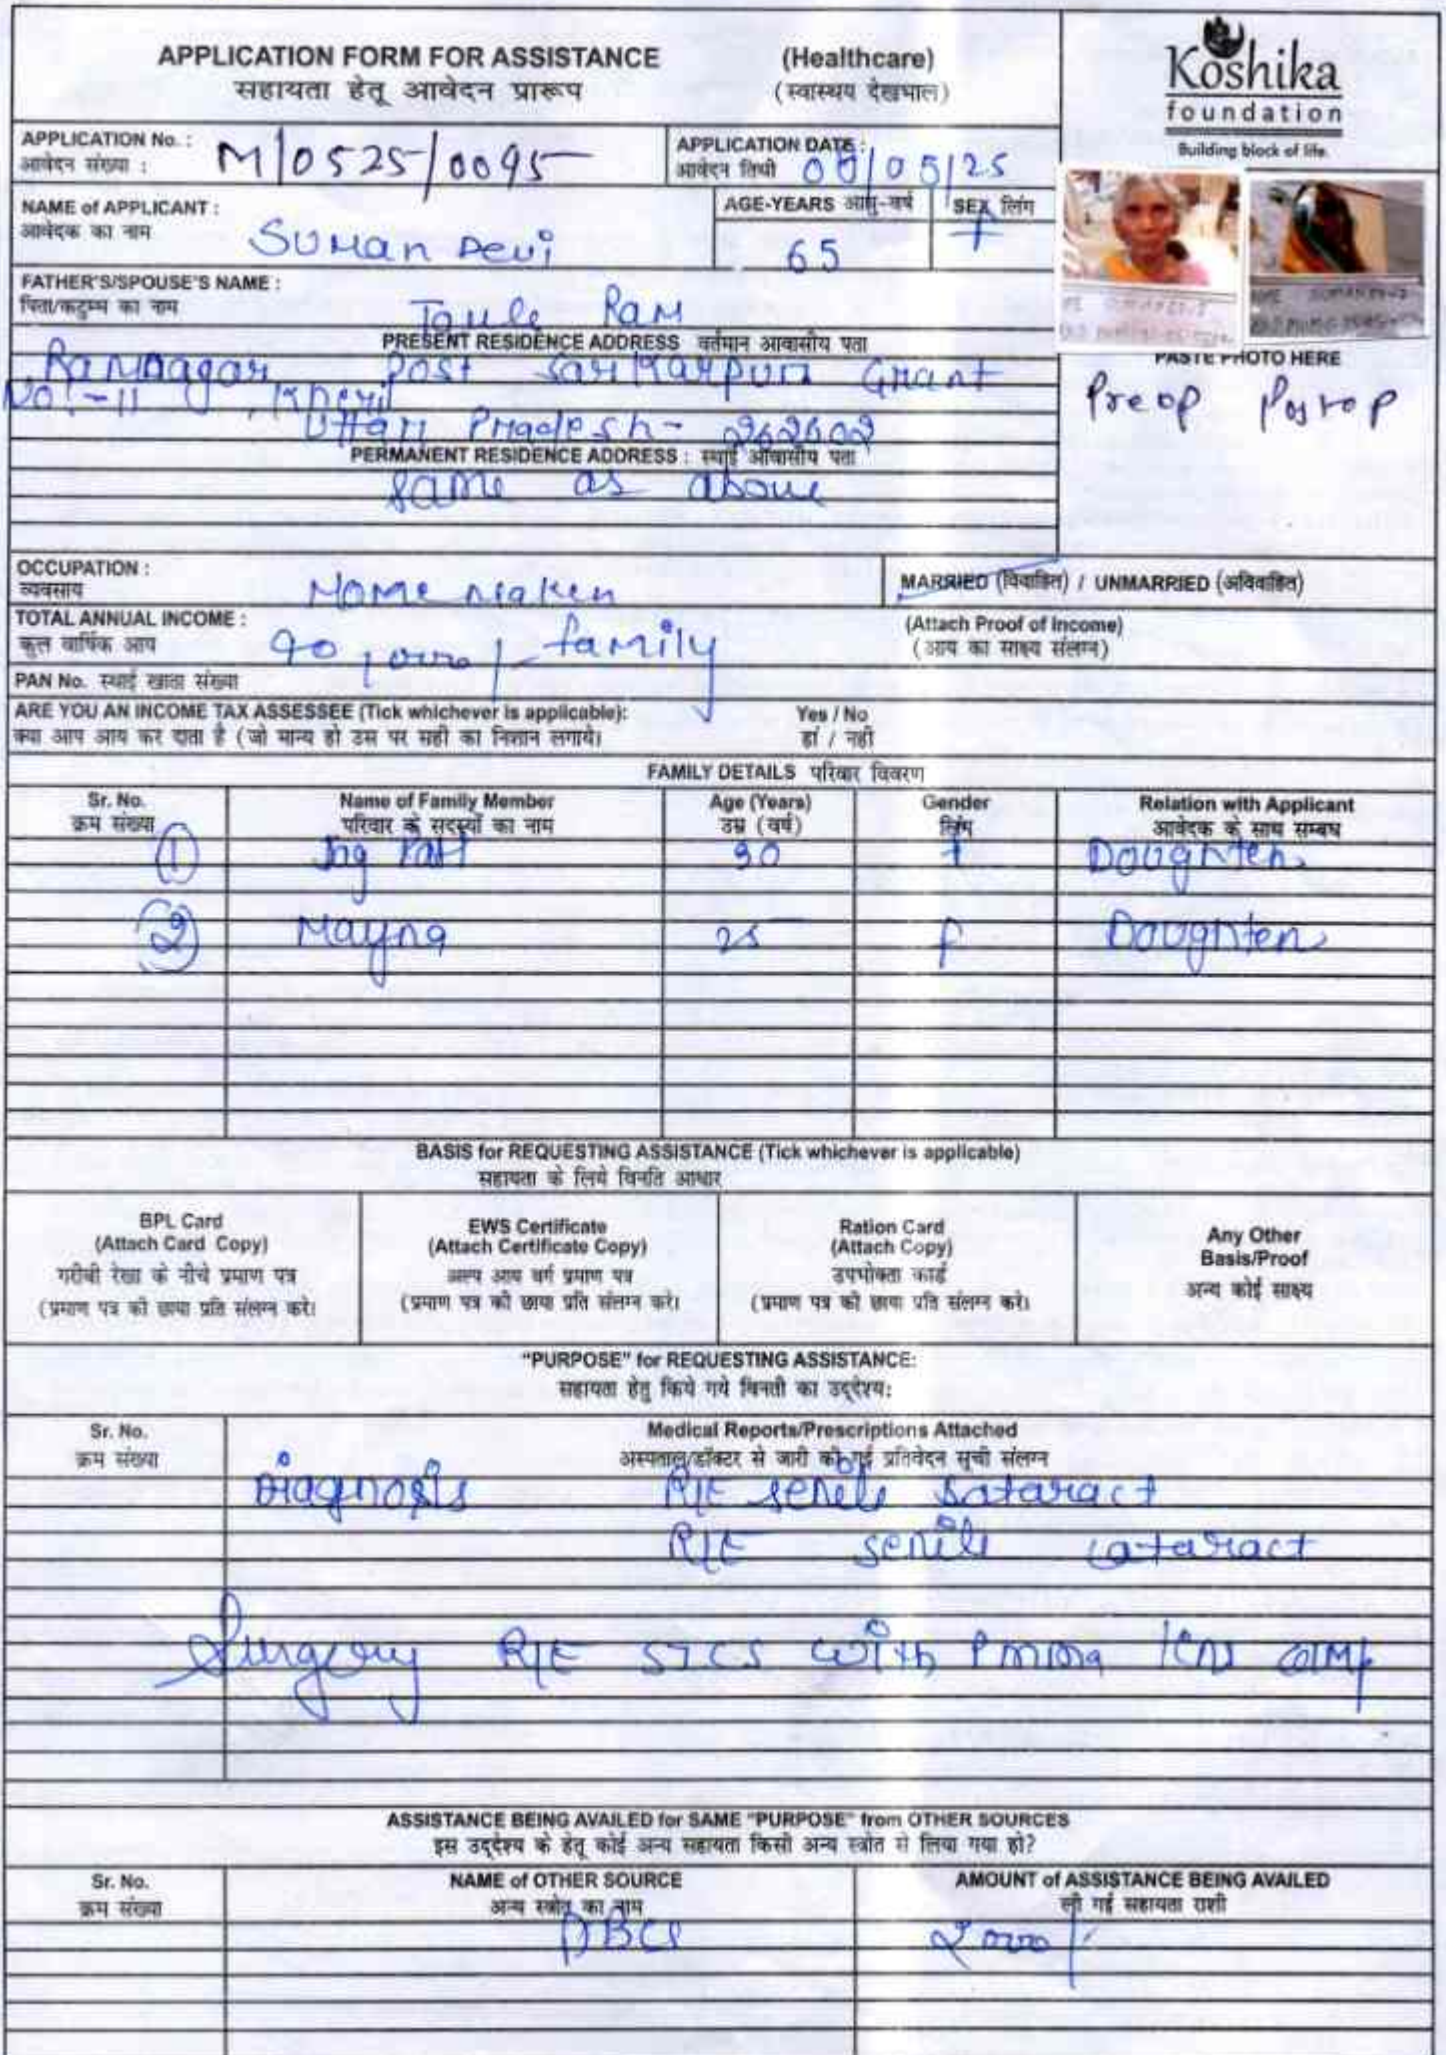 APPLICATION FORM FOR ASSISTANCE (Healthcare)
सहायता हेतू आवेदन प्रारूप (स्वास्थय देखभाल)
Koshika
foundation
Building block of life.
APPLICATION No. : M/0525/0095
आवेदन संख्या :
APPLICATION DATE :
आवेदन तिथी /05/25
NAME of APPLICANT :
आवेदक का नाम SUMan Devi
AGE-YEARS आयु-वर्ष
65
SEX लिंग
f
FATHER'S/SPOUSE'S NAME :
पिता/कटुम्ब का नाम Ram
PRESENT RESIDENCE ADDRESS वर्तमान आवासीय पता
Ramnagar Post Grant
No.-11, Kheri
Uttar Pradesh-
PERMANENT RESIDENCE ADDRESS : स्थाई आवासीय पता
same as above
PASTE PHOTO HERE
Preop Postop
OCCUPATION :
व्यवसाय Home maker
MARRIED (विवाहित) / UNMARRIED (अविवाहित)
TOTAL ANNUAL INCOME :
कुल वार्षिक आय family
(Attach Proof of Income)
(आय का साक्ष्य संलग्न)
PAN No. स्थाई खाता संख्या
ARE YOU AN INCOME TAX ASSESSEE (Tick whichever is applicable): Yes / No
क्या आप आय कर दाता है (जो मान्य हो उस पर सही का निशान लगाये। हां / नही
FAMILY DETAILS परिवार विवरण
Sr. No. Name of Family Member Age (Years) Gender Relation with Applicant
क्रम संख्या परिवार के सदस्यों का नाम उम्र (वर्ष) लिंग आवेदक के साथ सम्बध
1 30 f Doughter
2 Mayna 25 F Doughter
BASIS for REQUESTING ASSISTANCE (Tick whichever is applicable)
सहायता के लिये विनति आधार
BPL Card
(Attach Card Copy)
गरीबी रेखा के नीचे प्रमाण पत्र
(प्रमाण पत्र की छाया प्रति संलग्न करे।
EWS Certificate
(Attach Certificate Copy)
अल्प आय वर्ग प्रमाण पत्र
(प्रमाण पत्र की छाया प्रति संलग्न करे।
Ration Card
(Attach Copy)
उपभोक्ता कार्ड
(प्रमाण पत्र की छाया प्रति संलग्न करे।
Any Other
Basis/Proof
अन्य कोई साक्ष्य
"PURPOSE" for REQUESTING ASSISTANCE:
सहायता हेतु किये गये विनती का उद्देश्य:
Sr. No. Medical Reports/Prescriptions Attached
क्रम संख्या अस्पताल/डॉक्टर से जारी की गई प्रतिवेदन सूची संलग्न
Diagnosis R/E senile sataract
R/E senile cataract
Surgery R/E SICS with Pmma
ASSISTANCE BEING AVAILED for SAME "PURPOSE" from OTHER SOURCES
इस उद्देश्य के हेतू कोई अन्य सहायता किसी अन्य स्त्रोत से लिया गया हो?
Sr. No. NAME of OTHER SOURCE AMOUNT of ASSISTANCE BEING AVAILED
क्रम संख्या अन्य स्त्रोत का नाम ली गई सहायता राशी
DBCS 2000/